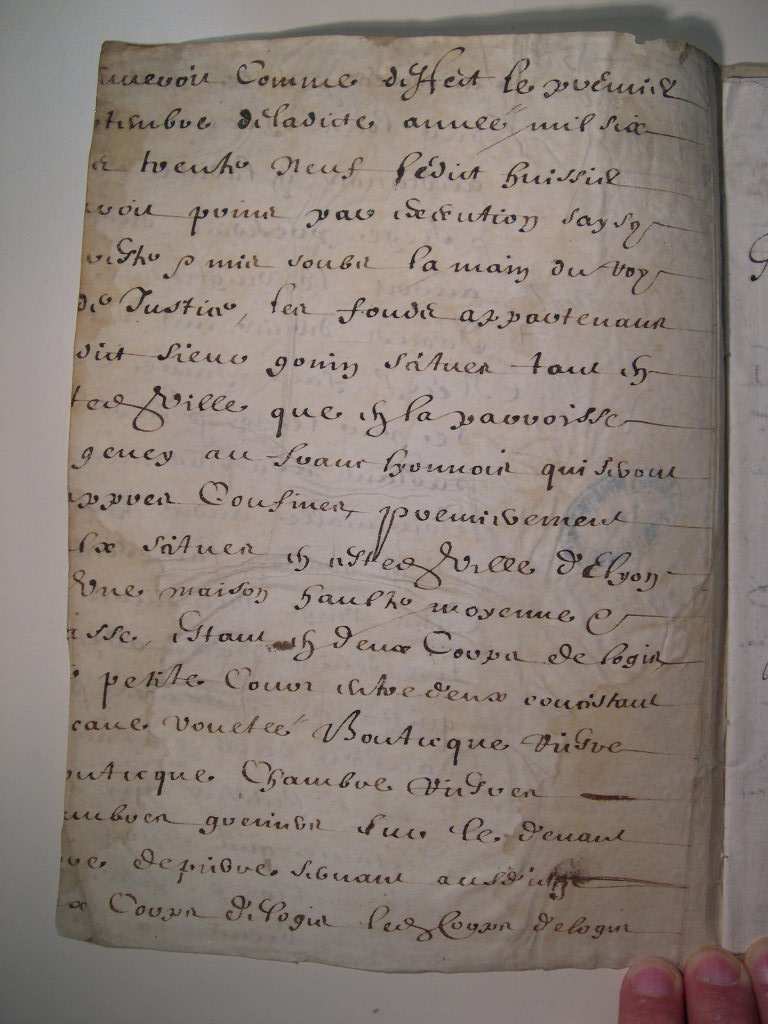 comme deffect le premier
tembre deladicte année mil six
trente neuf ledict huissier
voit prins par execution saysy
mis soubz la main du roy
de Justice, les fondz appartenans
dict sieur gonin situez tant en
ted ville que en la parroisse
geney au franc lyonnois qui seront
appres Confinez, premierement
situez en ested ville d'Elyon
Une maison haulte moyenne &
asse, estant en deux Corps de logis
petitte Cour entre deux concistant
cave voutée Boutique
outicque Chambre
ambres greniers sur le devant
de pierre servant ausd
Corps de logis led Corps de logis